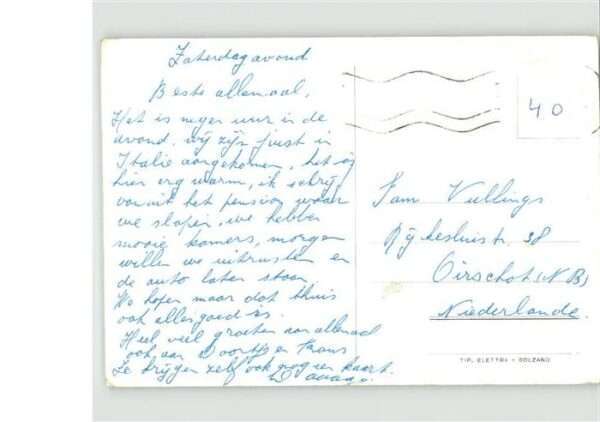 Zaterdagavond
Beste allemaal,
Het is negen uur in de
avond. wij zijn juist in
Italie aangekomen, het is
hier erg warm, ik schrijf
vanuit het pension waar
we slapen, we hebben
mooie kamers, morgen
willen we uitrusten en
de auto laten staan
We hopen maar dat thuis
ook alles goed is.
Heel veel groeten aan allemaal
ook aan Doortje en Frans
Ze krijgen zelf ook nog een kaart.
40
Fam Vullings
Rijkesluisstr. 38
Oirschot (N B)
Niederlande.
TIP. ELETTRA - BOLZANO